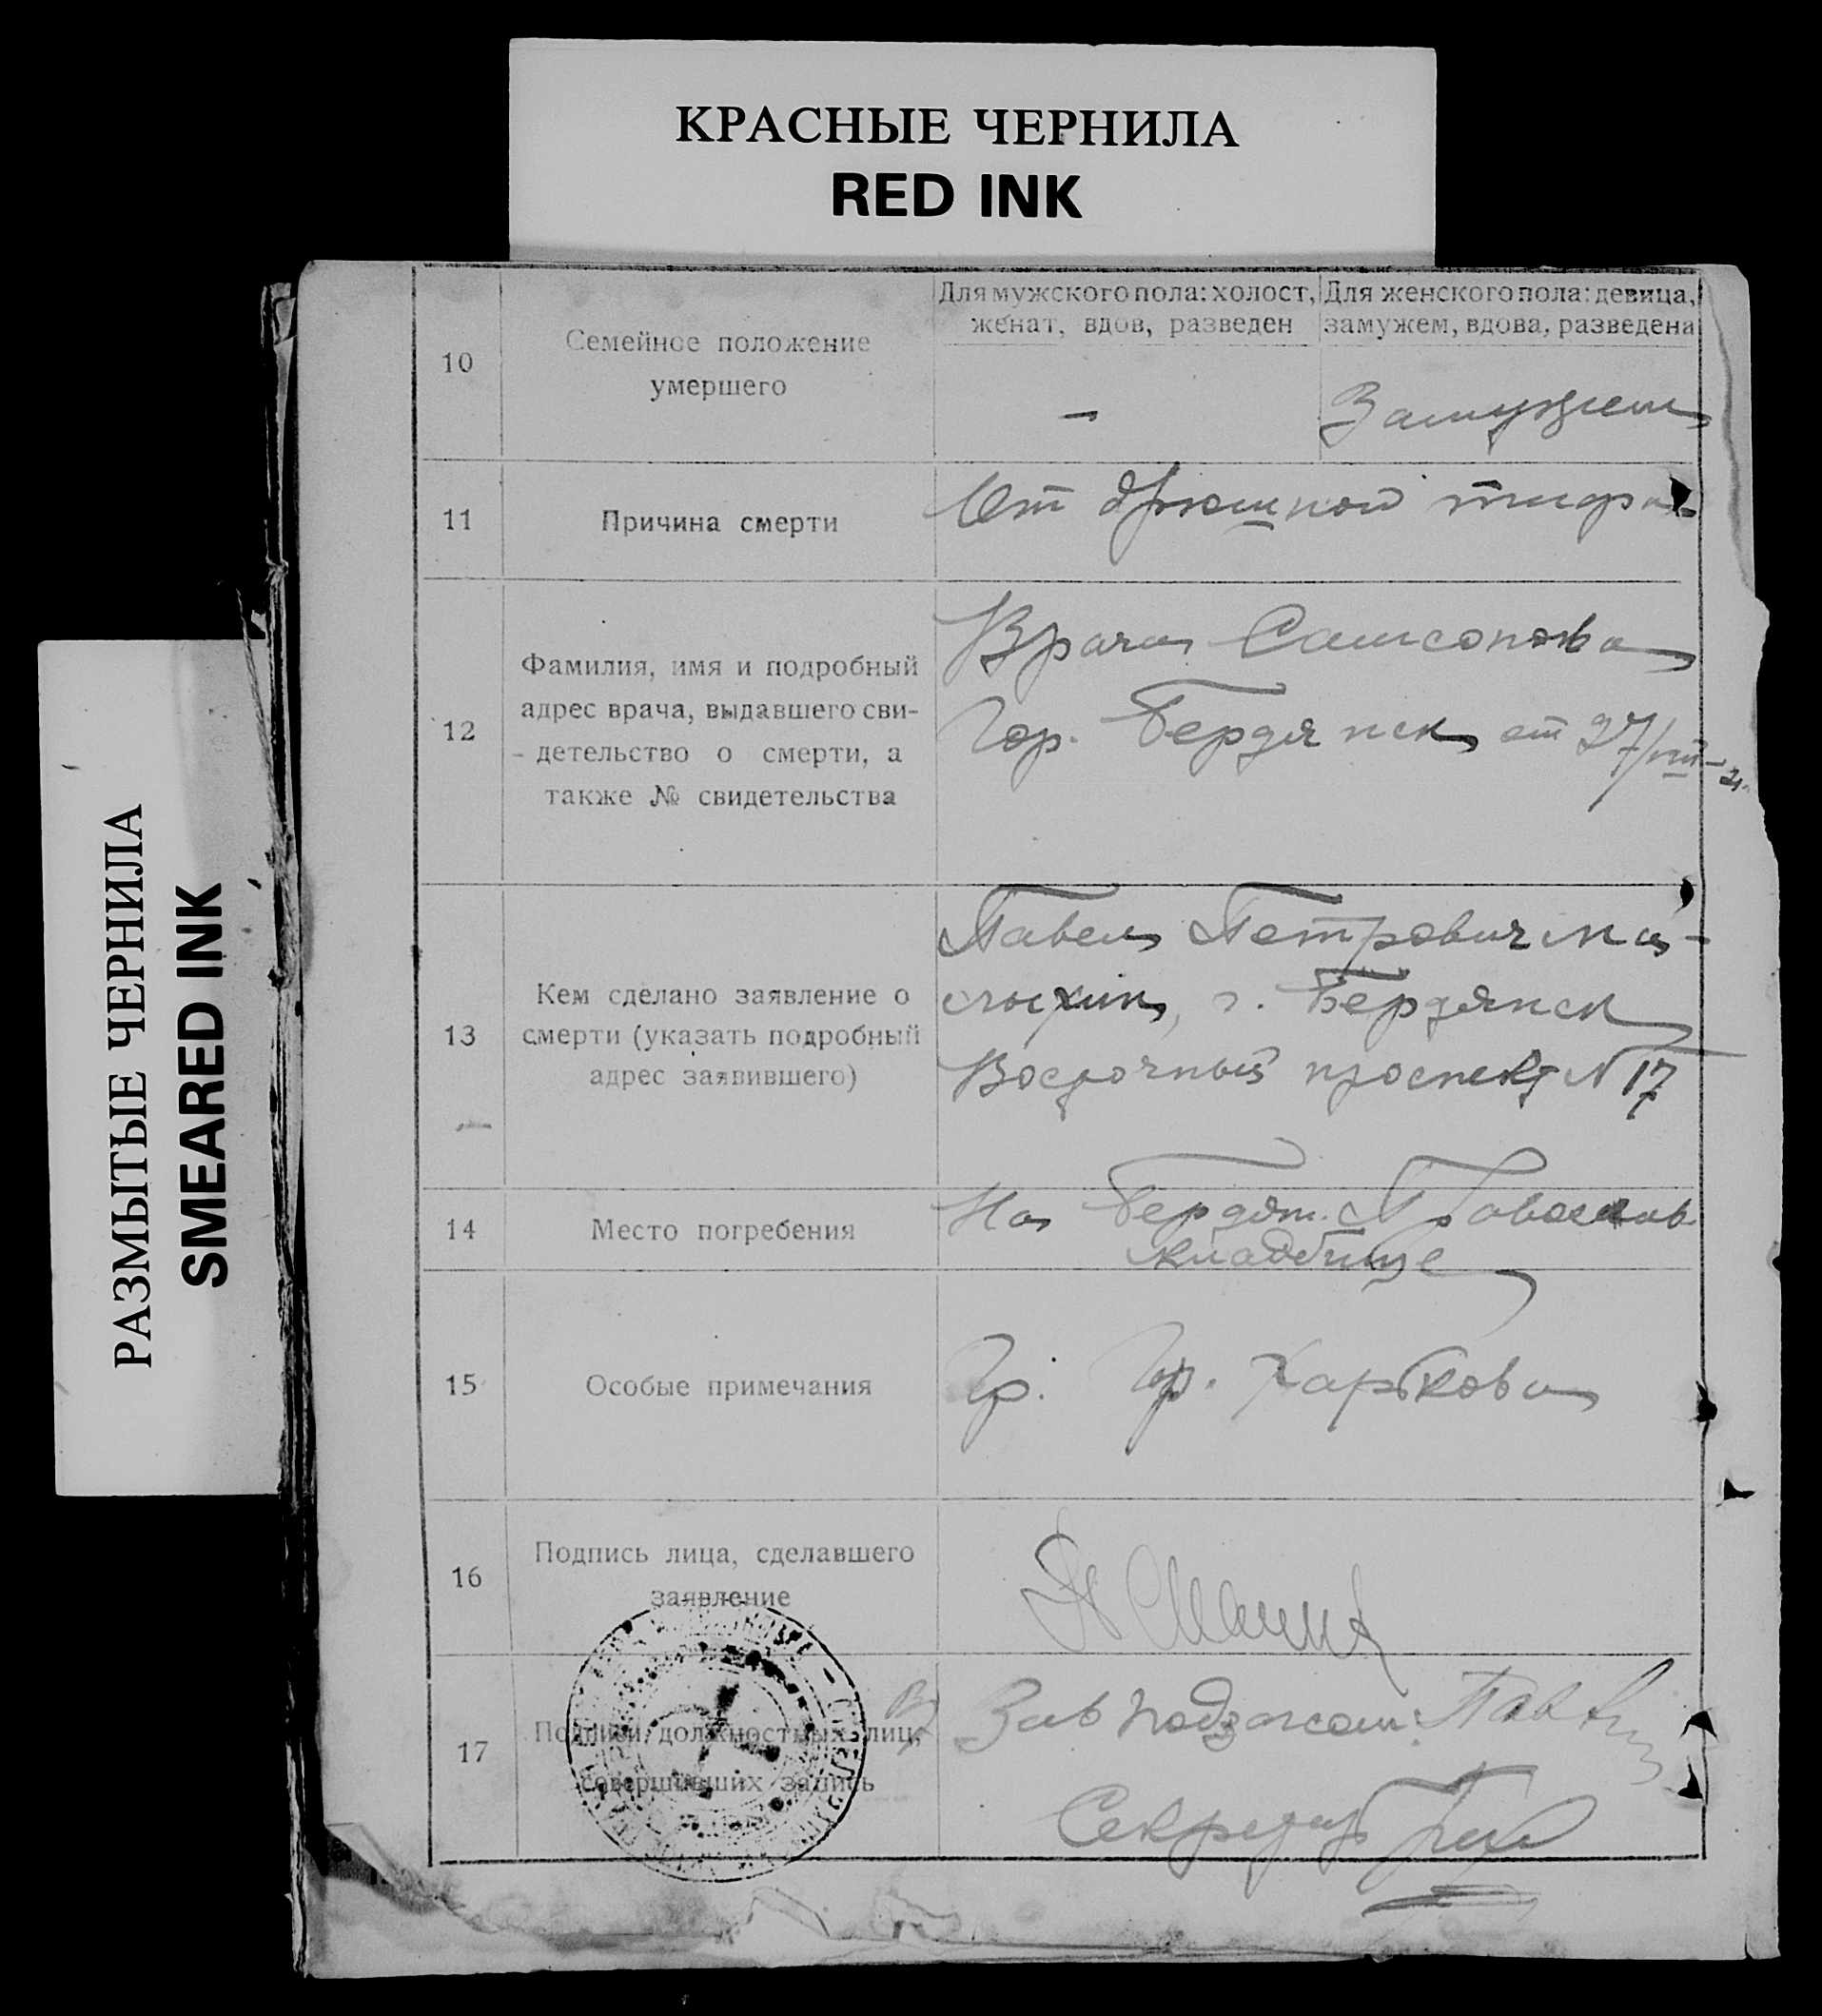 КРАСНЫЕ ЧЕРНИЛА
RED INK
РАЗМЫТЫЕ ЧЕРНИЛА
SMEARED INK
10
Семейное положение
умершего
Для мужского пола: холост,
женат, вдов, разведен
Для женского пола: девица,
замужем, вдова, разведена
–
Замужем
11
Причина смерти
От брюшной тифа
12
Фамилия, имя и подробный
адрес врача, выдавшего сви-
- детельство о смерти, а
также № свидетельства
Врача Самсонова
Гор. Бердянск от 27/VIII-21
13
Кем сделано заявление о
смерти (указать подробный
адрес заявившего)
Павел Петрович Ма-
слыхин, г. Бердянск
Восточный проспект N 17
14
Место погребения
На Бердян. Православ.
кладбище
15
Особые примечания
Гр. гор. Харькова
16
Подпись лица, сделавшего
заявление
17
Подписи должностных лиц,
совершивших запись
Зав подзагсом:
Секретарь